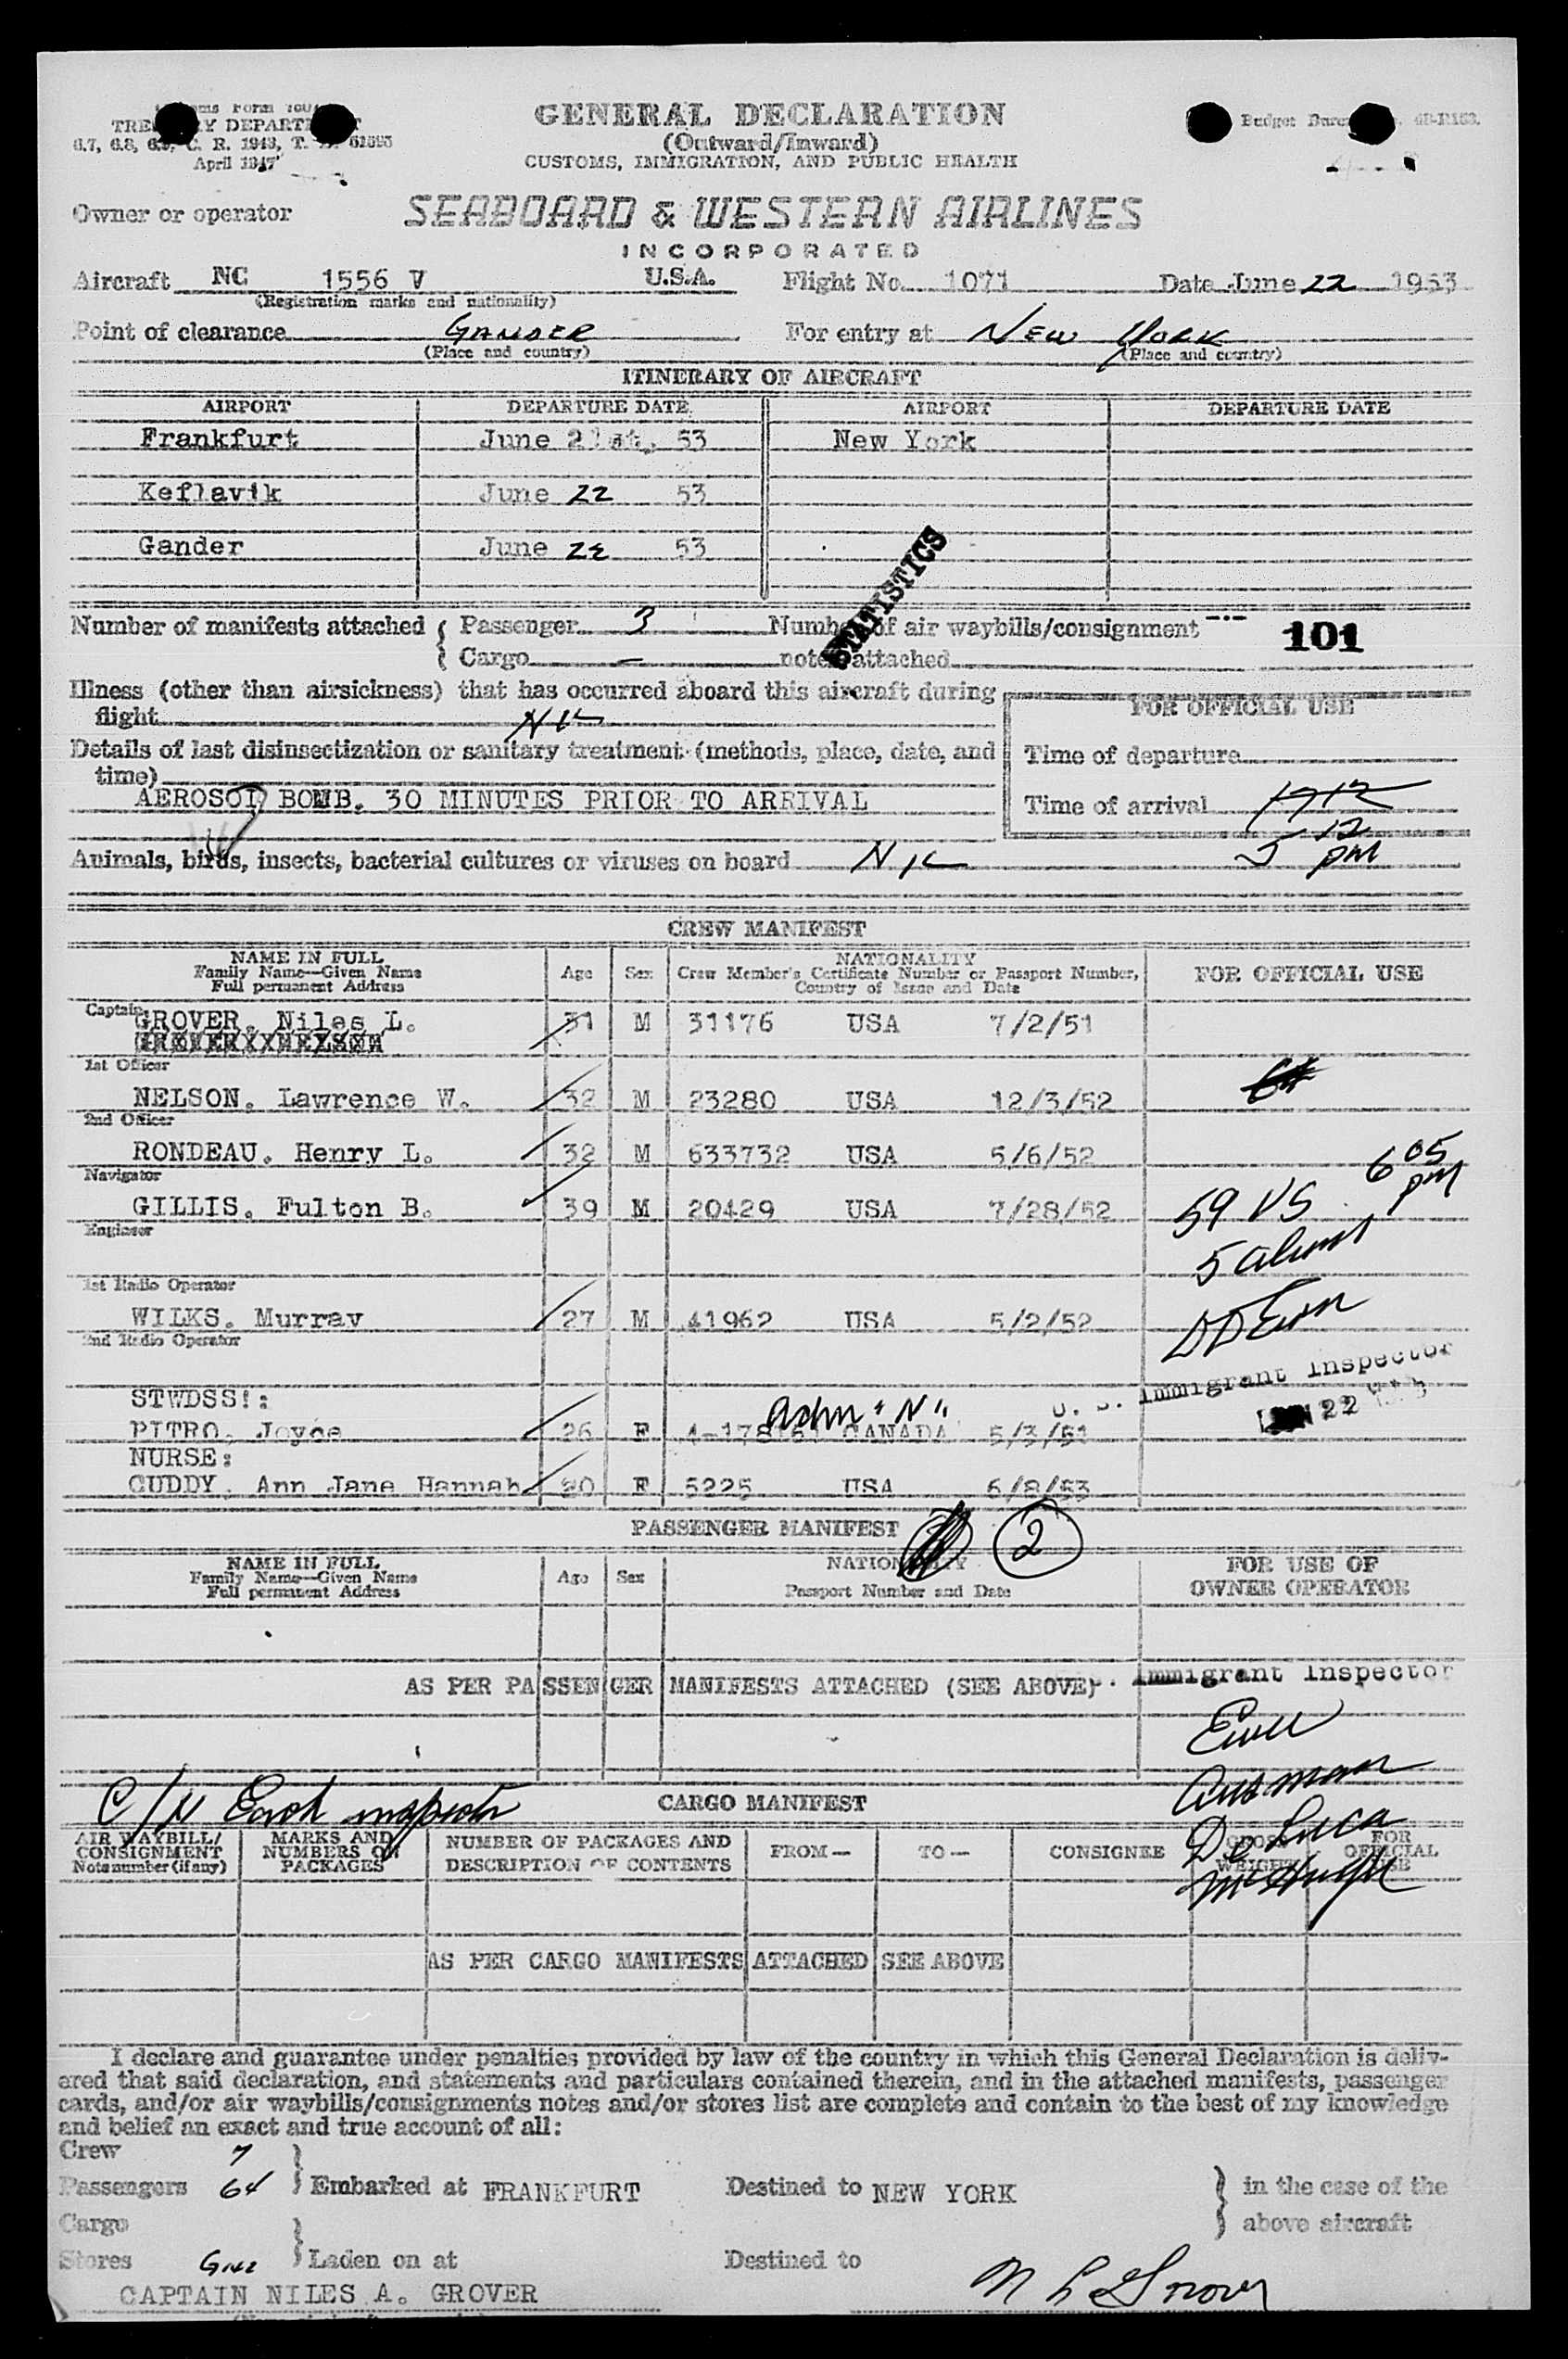 TREASURY DEPARTMENT
April 1947
GENERAL DECLARATION
(Outward/Inward)
CUSTOMS, IMMIGRATION, AND PUBLIC HEALTH
Owner or operator SEABOARD & WESTERN AIRLINES
INCORPORATED
Aircraft NC 1556 V U.S.A. Flight No. 1071 Date June 22 1953
(Registration marks and nationality)
Point of clearance GANDER For entry at NEW YORK
(Place and country) (Place and country)
ITINERARY OF AIRCRAFT
AIRPORT DEPARTURE DATE AIRPORT DEPARTURE DATE
Frankfurt June 21st, 53 New York
Keflavik June 22 53
Gander June 22 53
STATISTICS
Number of manifests attached { Passenger 3 Number of air waybills/consignment 101
Cargo — notes attached
Illness (other than airsickness) that has occurred aboard this aircraft during
flight NIL
FOR OFFICIAL USE
Details of last disinsectization or sanitary treatment (methods, place, date, and
time)
Time of departure
AEROSOL BOMB. 30 MINUTES PRIOR TO ARRIVAL
Time of arrival 1712
5 12 pm
Animals, birds, insects, bacterial cultures or viruses on board NIL
CREW MANIFEST
NAME IN FULL
Family Name—Given Name
Full permanent Address
Age Sex
NATIONALITY
Crew Member's Certificate Number or Passport Number,
Country of Issue and Date
FOR OFFICIAL USE
Captain
GROVER. Niles L. 31 M 31176 USA 7/2/51
1st Officer
NELSON. Lawrence W. 32 M 23280 USA 12/3/52
2nd Officer
RONDEAU. Henry L. 32 M 633732 USA 5/6/52
6 05 pm
Navigator
GILLIS. Fulton B. 39 M 20429 USA 7/28/52
59 US
Engineer
5 aliens
1st Radio Operator
WILKS. Murray 27 M 41962 USA 5/2/52
2nd Radio Operator
U. S. Immigrant Inspector
22
STWDSS!:
Adm "N"
PITRO. Joyce 26 F CANADA 5/3/51
NURSE:
CUDDY. Ann Jane Hannah F 5225 USA 6/8/53
PASSENGER MANIFEST 2
NAME IN FULL
Family Name—Given Name
Full permanent Address
Age Sex
NATIONALITY
Passport Number and Date
FOR USE OF
OWNER OPERATOR
AS PER PASSENGER MANIFESTS ATTACHED (SEE ABOVE)
Immigrant Inspector
Ausman
De Luca
McHugh
C/N
CARGO MANIFEST
AIR WAYBILL/
CONSIGNMENT
Note number (if any)
MARKS AND
NUMBERS ON
PACKAGES
NUMBER OF PACKAGES AND
DESCRIPTION OF CONTENTS
FROM—
TO—
CONSIGNEE
GROSS
WEIGHT
FOR
OFFICIAL
USE
AS PER CARGO MANIFESTS ATTACHED SEE ABOVE
I declare and guarantee under penalties provided by law of the country in which this General Declaration is deliv-
ered that said declaration, and statements and particulars contained therein, and in the attached manifests, passenger
cards, and/or air waybills/consignments notes and/or stores list are complete and contain to the best of my knowledge
and belief an exact and true account of all:
Crew 7
Passengers 64 } Embarked at FRANKFURT Destined to NEW YORK } in the case of the
Cargo above aircraft
Stores } Laden on at Destined to
N L Grover
CAPTAIN NILES A. GROVER